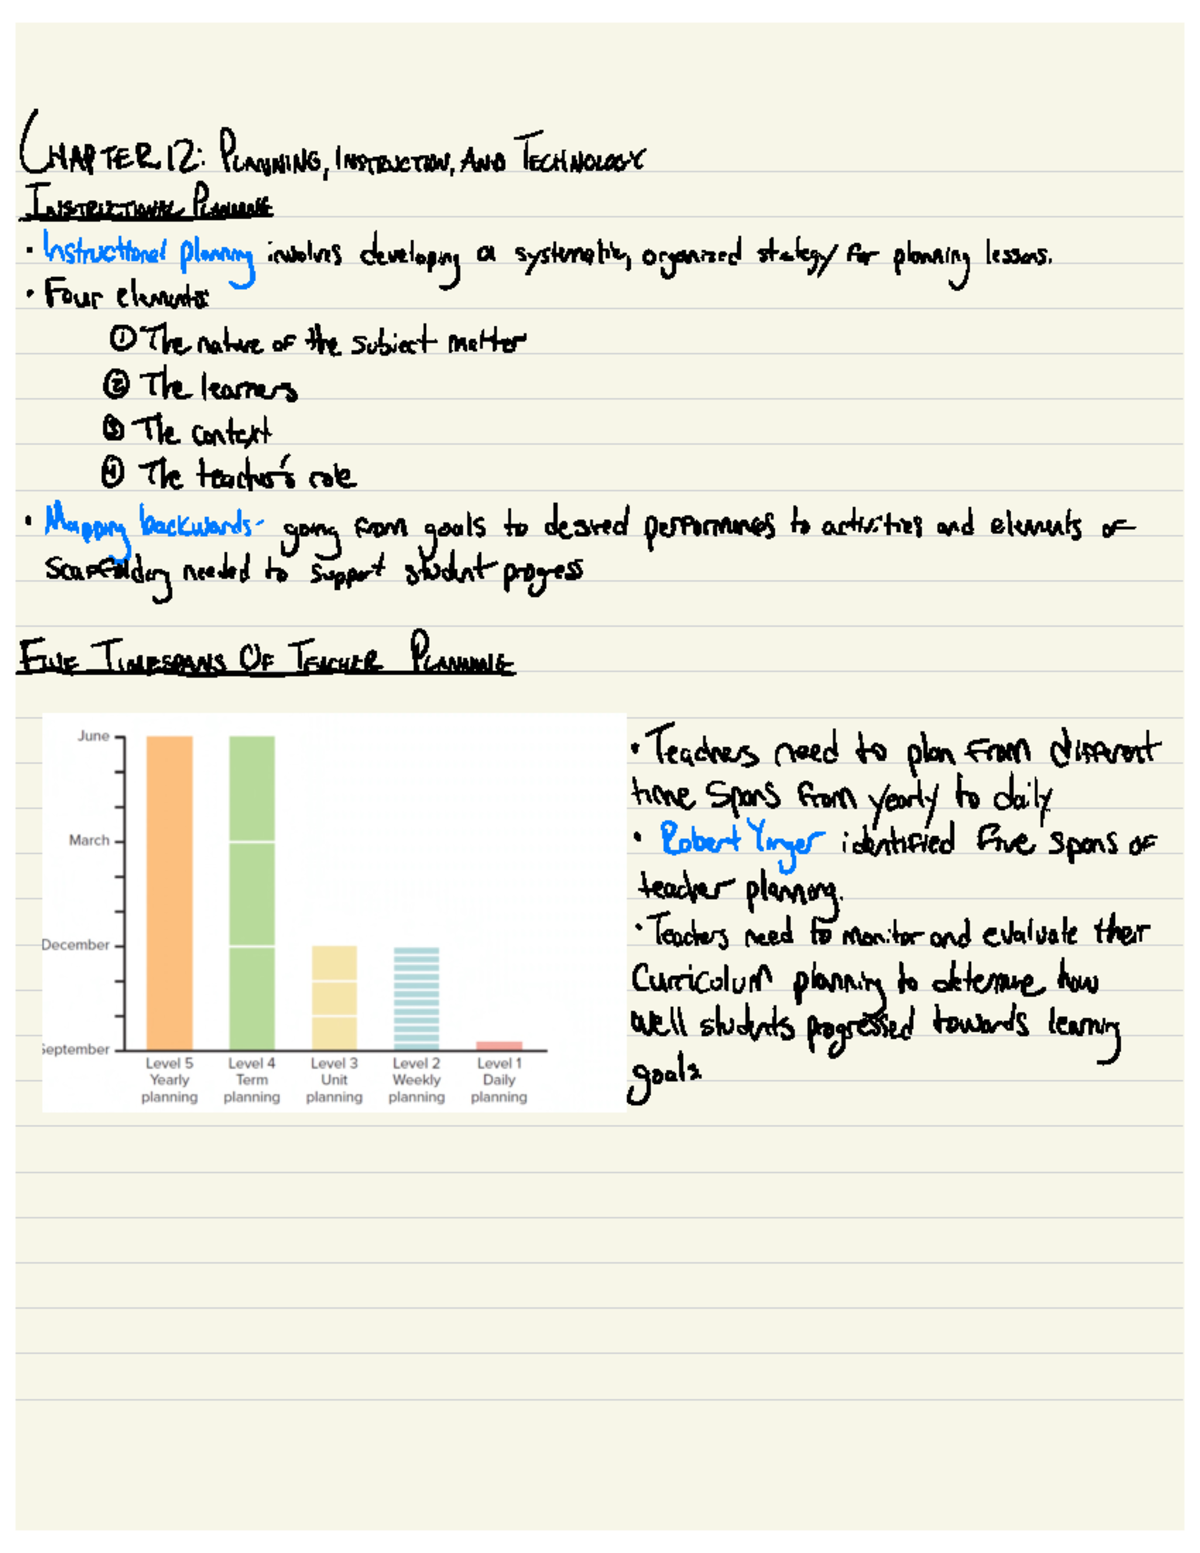 CHAPTER 12: PLANNING, INSTRUCTION, AND TECHNOLOGY
INSTRUCTIONAL PLANNING
• Instructional planning involves developing a systematic, organized strategy for planning lessons.
• Four elements:
① The nature of the subject matter
② The learners
③ The context
④ The teacher's role
• Mapping backwards- going from goals to desired performances to activities and elements of
scaffolding needed to support student progress
FIVE TIMESPANS OF TEACHER PLANNING
June
March
December
September
Level 5 Level 4 Level 3 Level 2 Level 1
Yearly Term Unit Weekly Daily
planning planning planning planning planning
• Teachers need to plan from different
time spans from yearly to daily.
• Robert Yinger identified five spans of
teacher planning.
• Teachers need to monitor and evaluate their
curriculum planning to determine how
well students progressed towards learning
goals